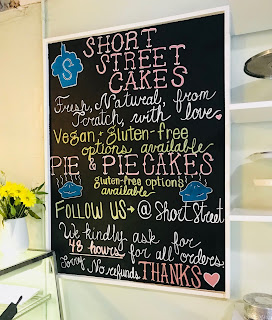 S
SHORT
STREET
CAKES
Fresh, Natural, from
Scratch, with love
Vegan + Gluten-free
options available
PIE & PIECAKES
gluten-free options
available
FOLLOW US → @ Short Street
We kindly ask for
48 hours for all orders
Sorry No refunds THANKS